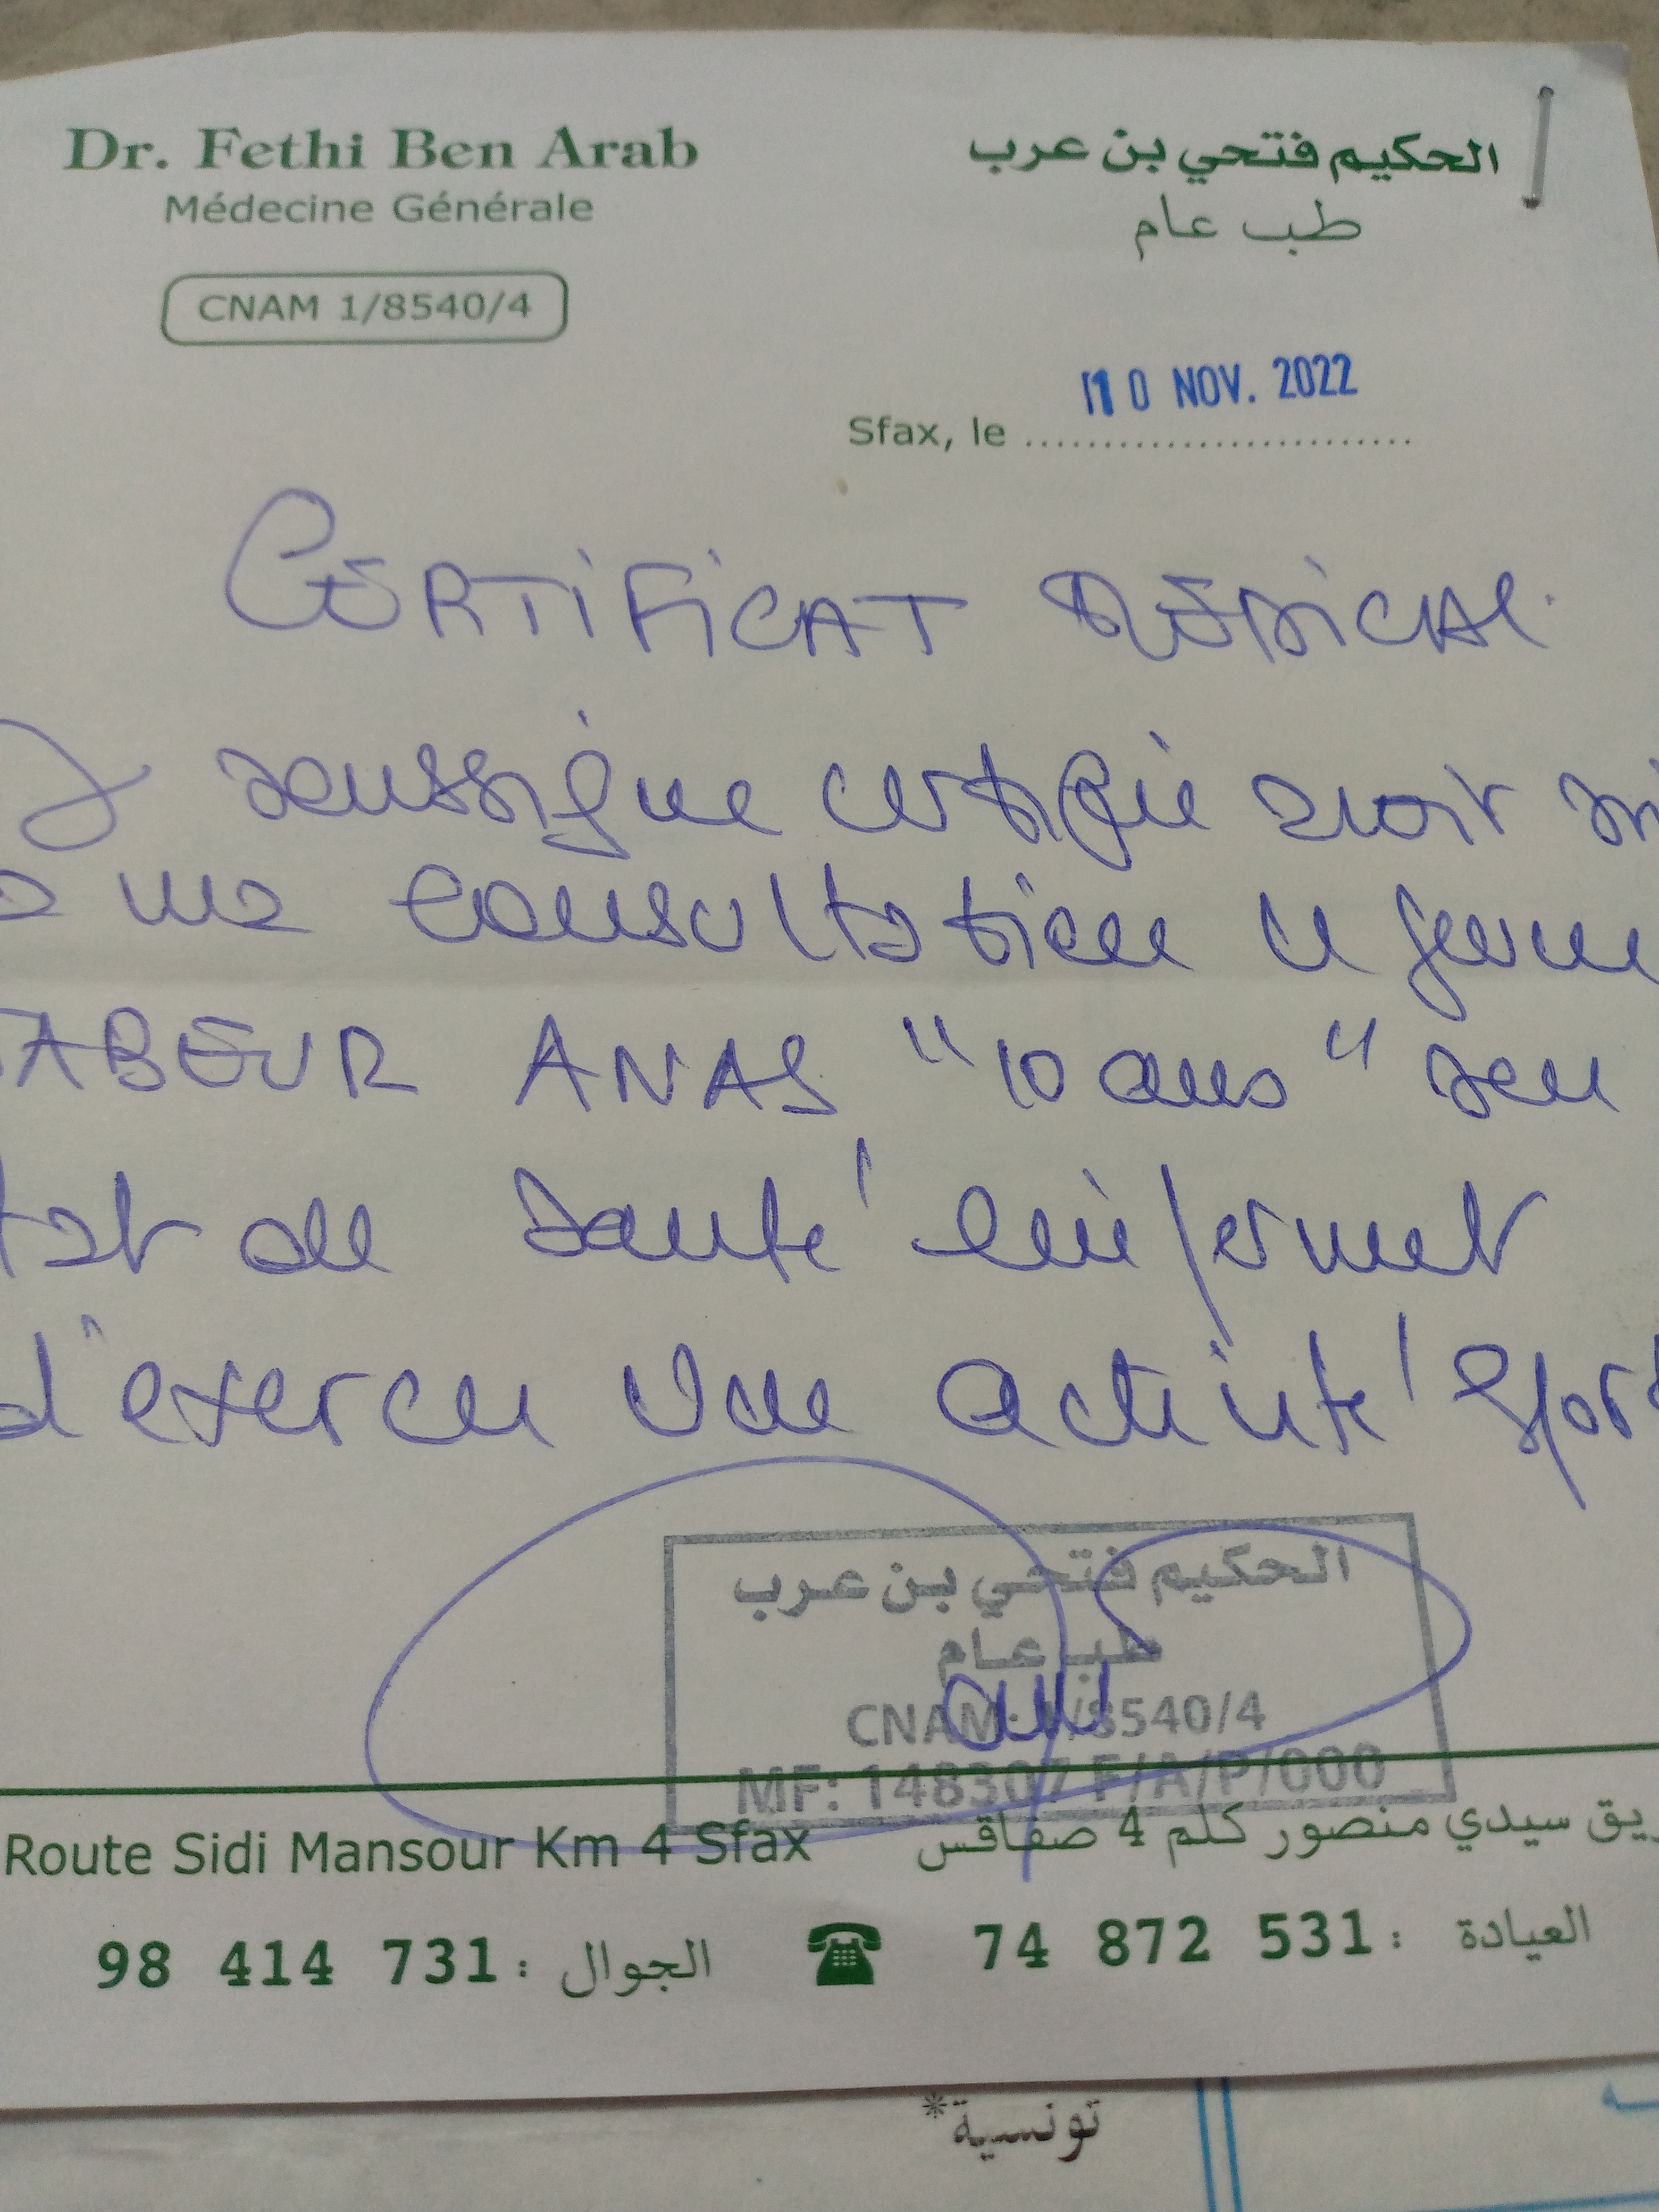 Dr. Fethi Ben Arab
Médecine Générale
CNAM 1/8540/4
الحكيم فتحي بن عرب
طب عام
Sfax, le 10 NOV. 2022
CERTIFICAT MÉDICAL
soussigné certifie avoir
a ma consultation le jeune
ABEUR ANAS "10 ans" son
de santé lui permet
d'exercer une activité sport
الحكيم فتحي بن عرب
طب عام
CNAM: 1/8540/4
MF: 148307 F/A/P/000
Route Sidi Mansour Km 4 Sfax
يق سيدي منصور كلم 4 صفاقس
98 414 731 : الجوال
74 872 531 : العيادة
تونسية*